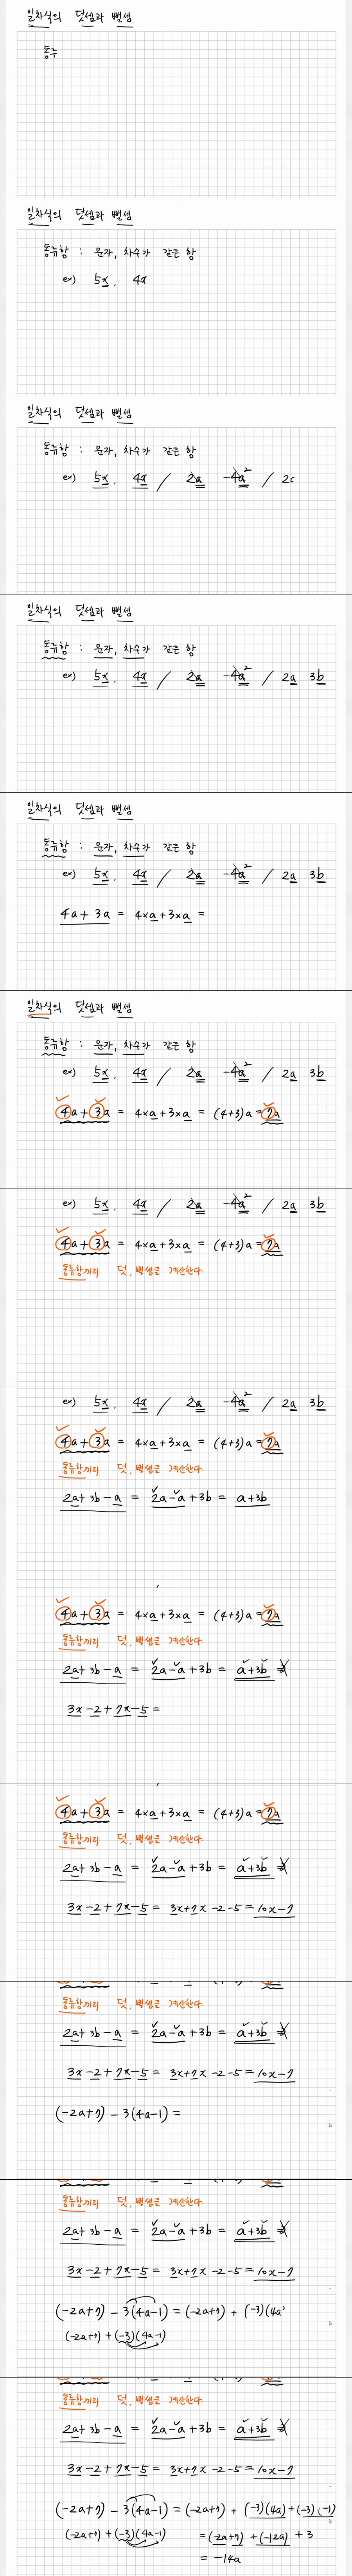 일차식의 덧셈과 뺄셈
동주
일차식의 덧셈과 뺄셈
동류항 : 문자, 차수가 같은 항
ex) 5x, 4x
일차식의 덧셈과 뺄셈
동류항 : 문자, 차수가 같은 항
ex) 5x, 4x / 2a -4a² / 2c
일차식의 덧셈과 뺄셈
동류항 : 문자, 차수가 같은 항
ex) 5x, 4x / 2a -4a² / 2a 3b
일차식의 덧셈과 뺄셈
동류항 : 문자, 차수가 같은 항
ex) 5x, 4x / 2a -4a² / 2a 3b
4a + 3a = 4×a + 3×a =
일차식의 덧셈과 뺄셈
동류항 : 문자, 차수가 같은 항
ex) 5x, 4x / 2a -4a² / 2a 3b
4a + 3a = 4×a + 3×a = (4+3)a = 7a
ex) 5x, 4x / 2a -4a² / 2a 3b
4a + 3a = 4×a + 3×a = (4+3)a = 7a
동류항끼리 덧, 뺄셈을 계산한다
ex) 5x, 4x / 2a -4a² / 2a 3b
4a + 3a = 4×a + 3×a = (4+3)a = 7a
동류항끼리 덧, 뺄셈을 계산한다
2a + 3b - a = 2a - a + 3b = a + 3b
4a + 3a = 4×a + 3×a = (4+3)a = 7a
동류항끼리 덧, 뺄셈을 계산한다
2a + 3b - a = 2a - a + 3b = a + 3b
3x - 2 + 7x - 5 =
4a + 3a = 4×a + 3×a = (4+3)a = 7a
동류항끼리 덧, 뺄셈을 계산한다
2a + 3b - a = 2a - a + 3b = a + 3b
3x - 2 + 7x - 5 = 3x + 7x - 2 - 5 = 10x - 7
동류항끼리 덧, 뺄셈을 계산한다
2a + 3b - a = 2a - a + 3b = a + 3b
3x - 2 + 7x - 5 = 3x + 7x - 2 - 5 = 10x - 7
(-2a+7) - 3(4a-1) =
동류항끼리 덧, 뺄셈을 계산한다
2a + 3b - a = 2a - a + 3b = a + 3b
3x - 2 + 7x - 5 = 3x + 7x - 2 - 5 = 10x - 7
(-2a+7) - 3(4a-1) = (-2a+7) + (-3)(4a
(-2a+7) + (-3)(4a-1)
동류항끼리 덧, 뺄셈을 계산한다
2a + 3b - a = 2a - a + 3b = a + 3b
3x - 2 + 7x - 5 = 3x + 7x - 2 - 5 = 10x - 7
(-2a+7) - 3(4a-1) = (-2a+7) + (-3)(4a) + (-3)(-1)
(-2a+7) + (-3)(4a-1) = (-2a+7) + (-12a) + 3
= -14a